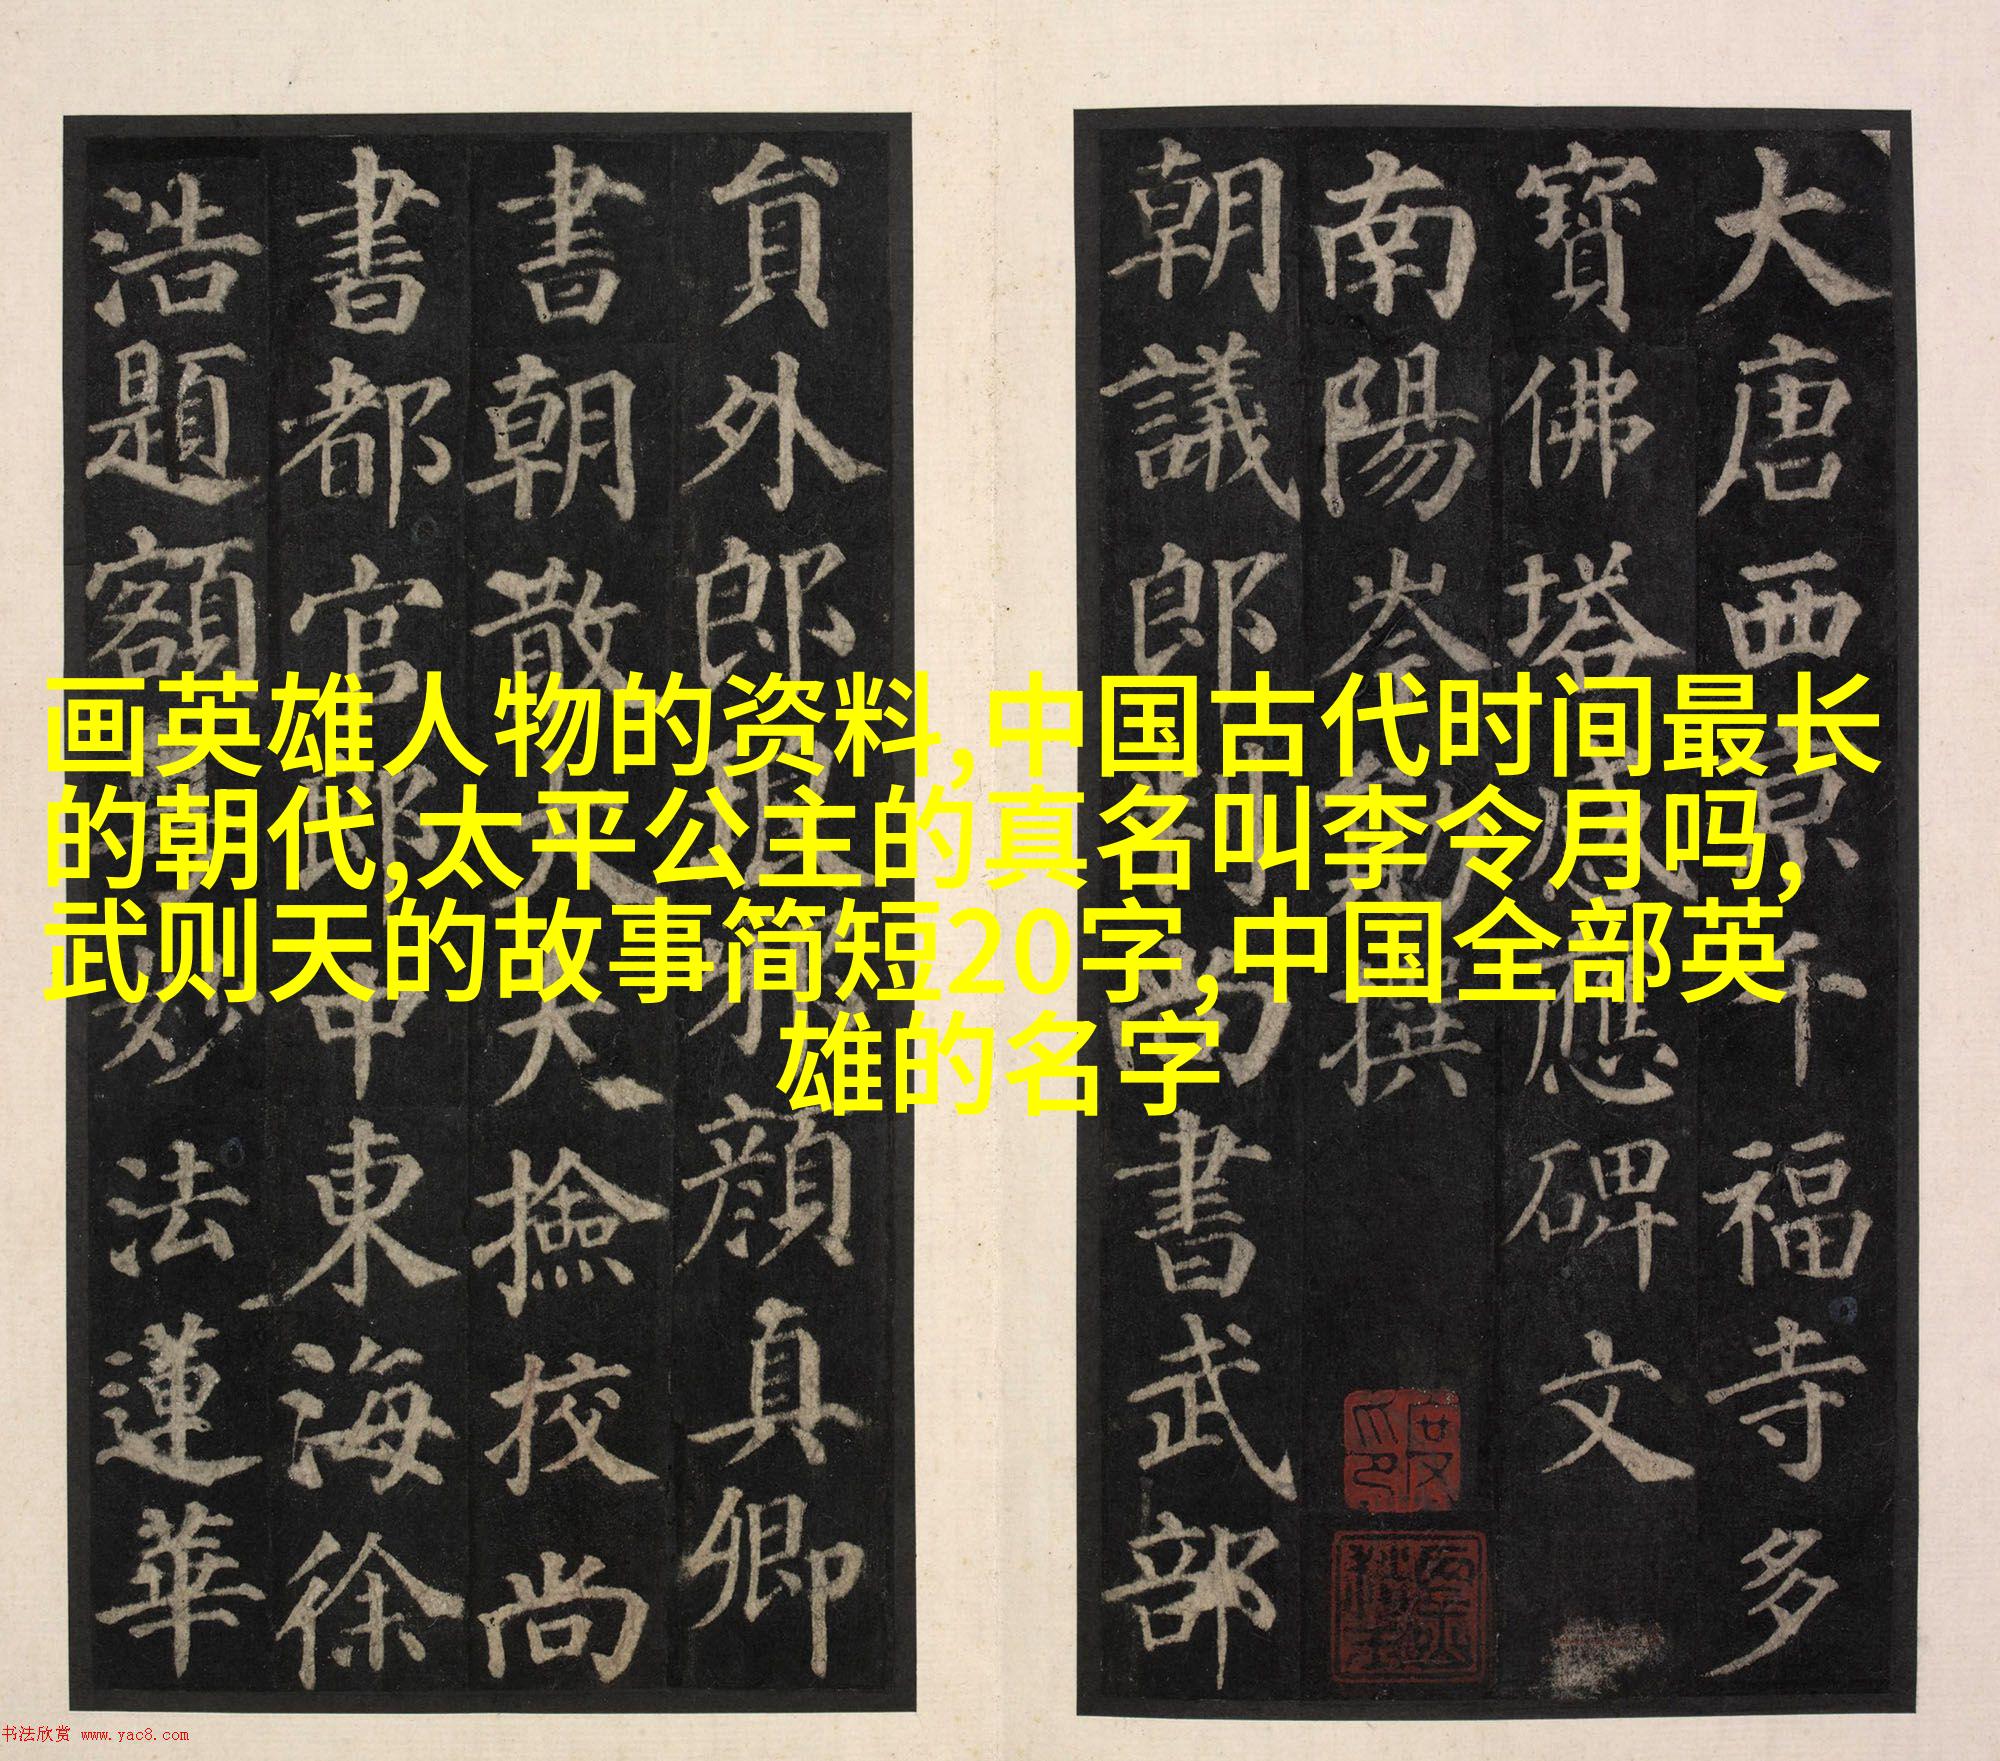 大唐西京千福寺多
寶佛塔感應碑文
南陽岑勛撰
朝議郎判尚書武部
貟外郎琅邪顔真卿
書朝散大夫撿校尚
書都官郎中東海徐
浩題額
妙法蓮華
画英雄人物的资料,中国古代时间最长
的朝代,太平公主的真名叫李令月吗,
武则天的故事简短20字,中国全部英
雄的名字
书法欣赏 www.yac8.com